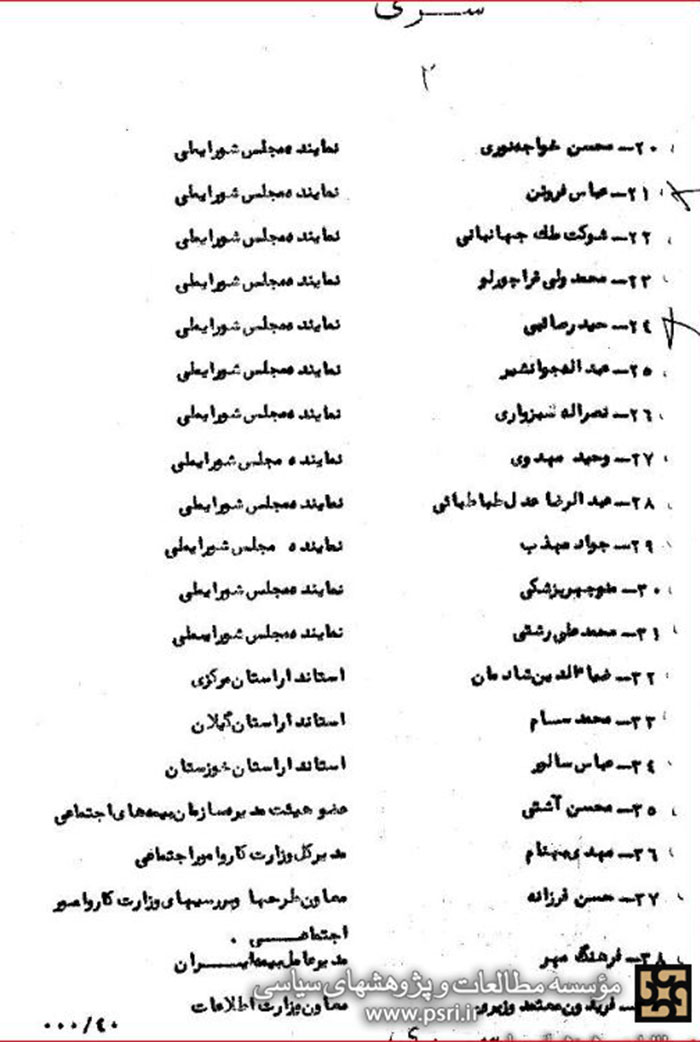 سـری
۲
۲۰ــ محسن خواجه‌نوری نماینده مجلس شورایملی
۲۱ــ عباس فروتن نماینده مجلس شورایملی
۲۲ــ شوکت ملک جهانبانی نماینده مجلس شورایملی
۲۳ــ محمد ولی قراچورلو نماینده مجلس شورایملی
۲٤ــ حیدر صائبی نماینده مجلس شورایملی
۲۵ــ عبداله جوانشیر نماینده مجلس شورایملی
۲٦ــ نصراله شیرواری نماینده مجلس شورایملی
۲۷ــ وحید مهدوی نماینده مجلس شورایملی
۲۸ــ عبدالرضا عدل طباطبائی نماینده مجلس شورایملی
۲۹ــ جواد مهذب نماینده مجلس شورایملی
۳۰ــ منوچهر پزشکی نماینده مجلس شورایملی
۳۱ــ محمد علی رشتی نماینده مجلس شورایملی
۳۲ــ ضیاءالدین شادمان استاندار استان مرکزی
۳۳ــ محمد سام استاندار استان گیلان
۳٤ــ عباس سالور استاندار استان خوزستان
۳۵ــ محسن آشتی عضو هیئت مدیره سازمان بیمه‌های اجتماعی
۳٦ــ مهدی بهنام مدیر کل وزارت کار و امور اجتماعی
۳۷ــ حسن فرزانه معاون طرحها و بررسیهای وزارت کار و امور
اجتماعـــی .
۳۸ــ فرهنگ مهر مدیر عامل بیمه ایـــران
ــ فریدون معتمد وزیری معاون وزارت اطلاعات
مؤسسه مطالعات و پژوهشهای سیاسی
www.psri.ir
۰۰۰/٤۰